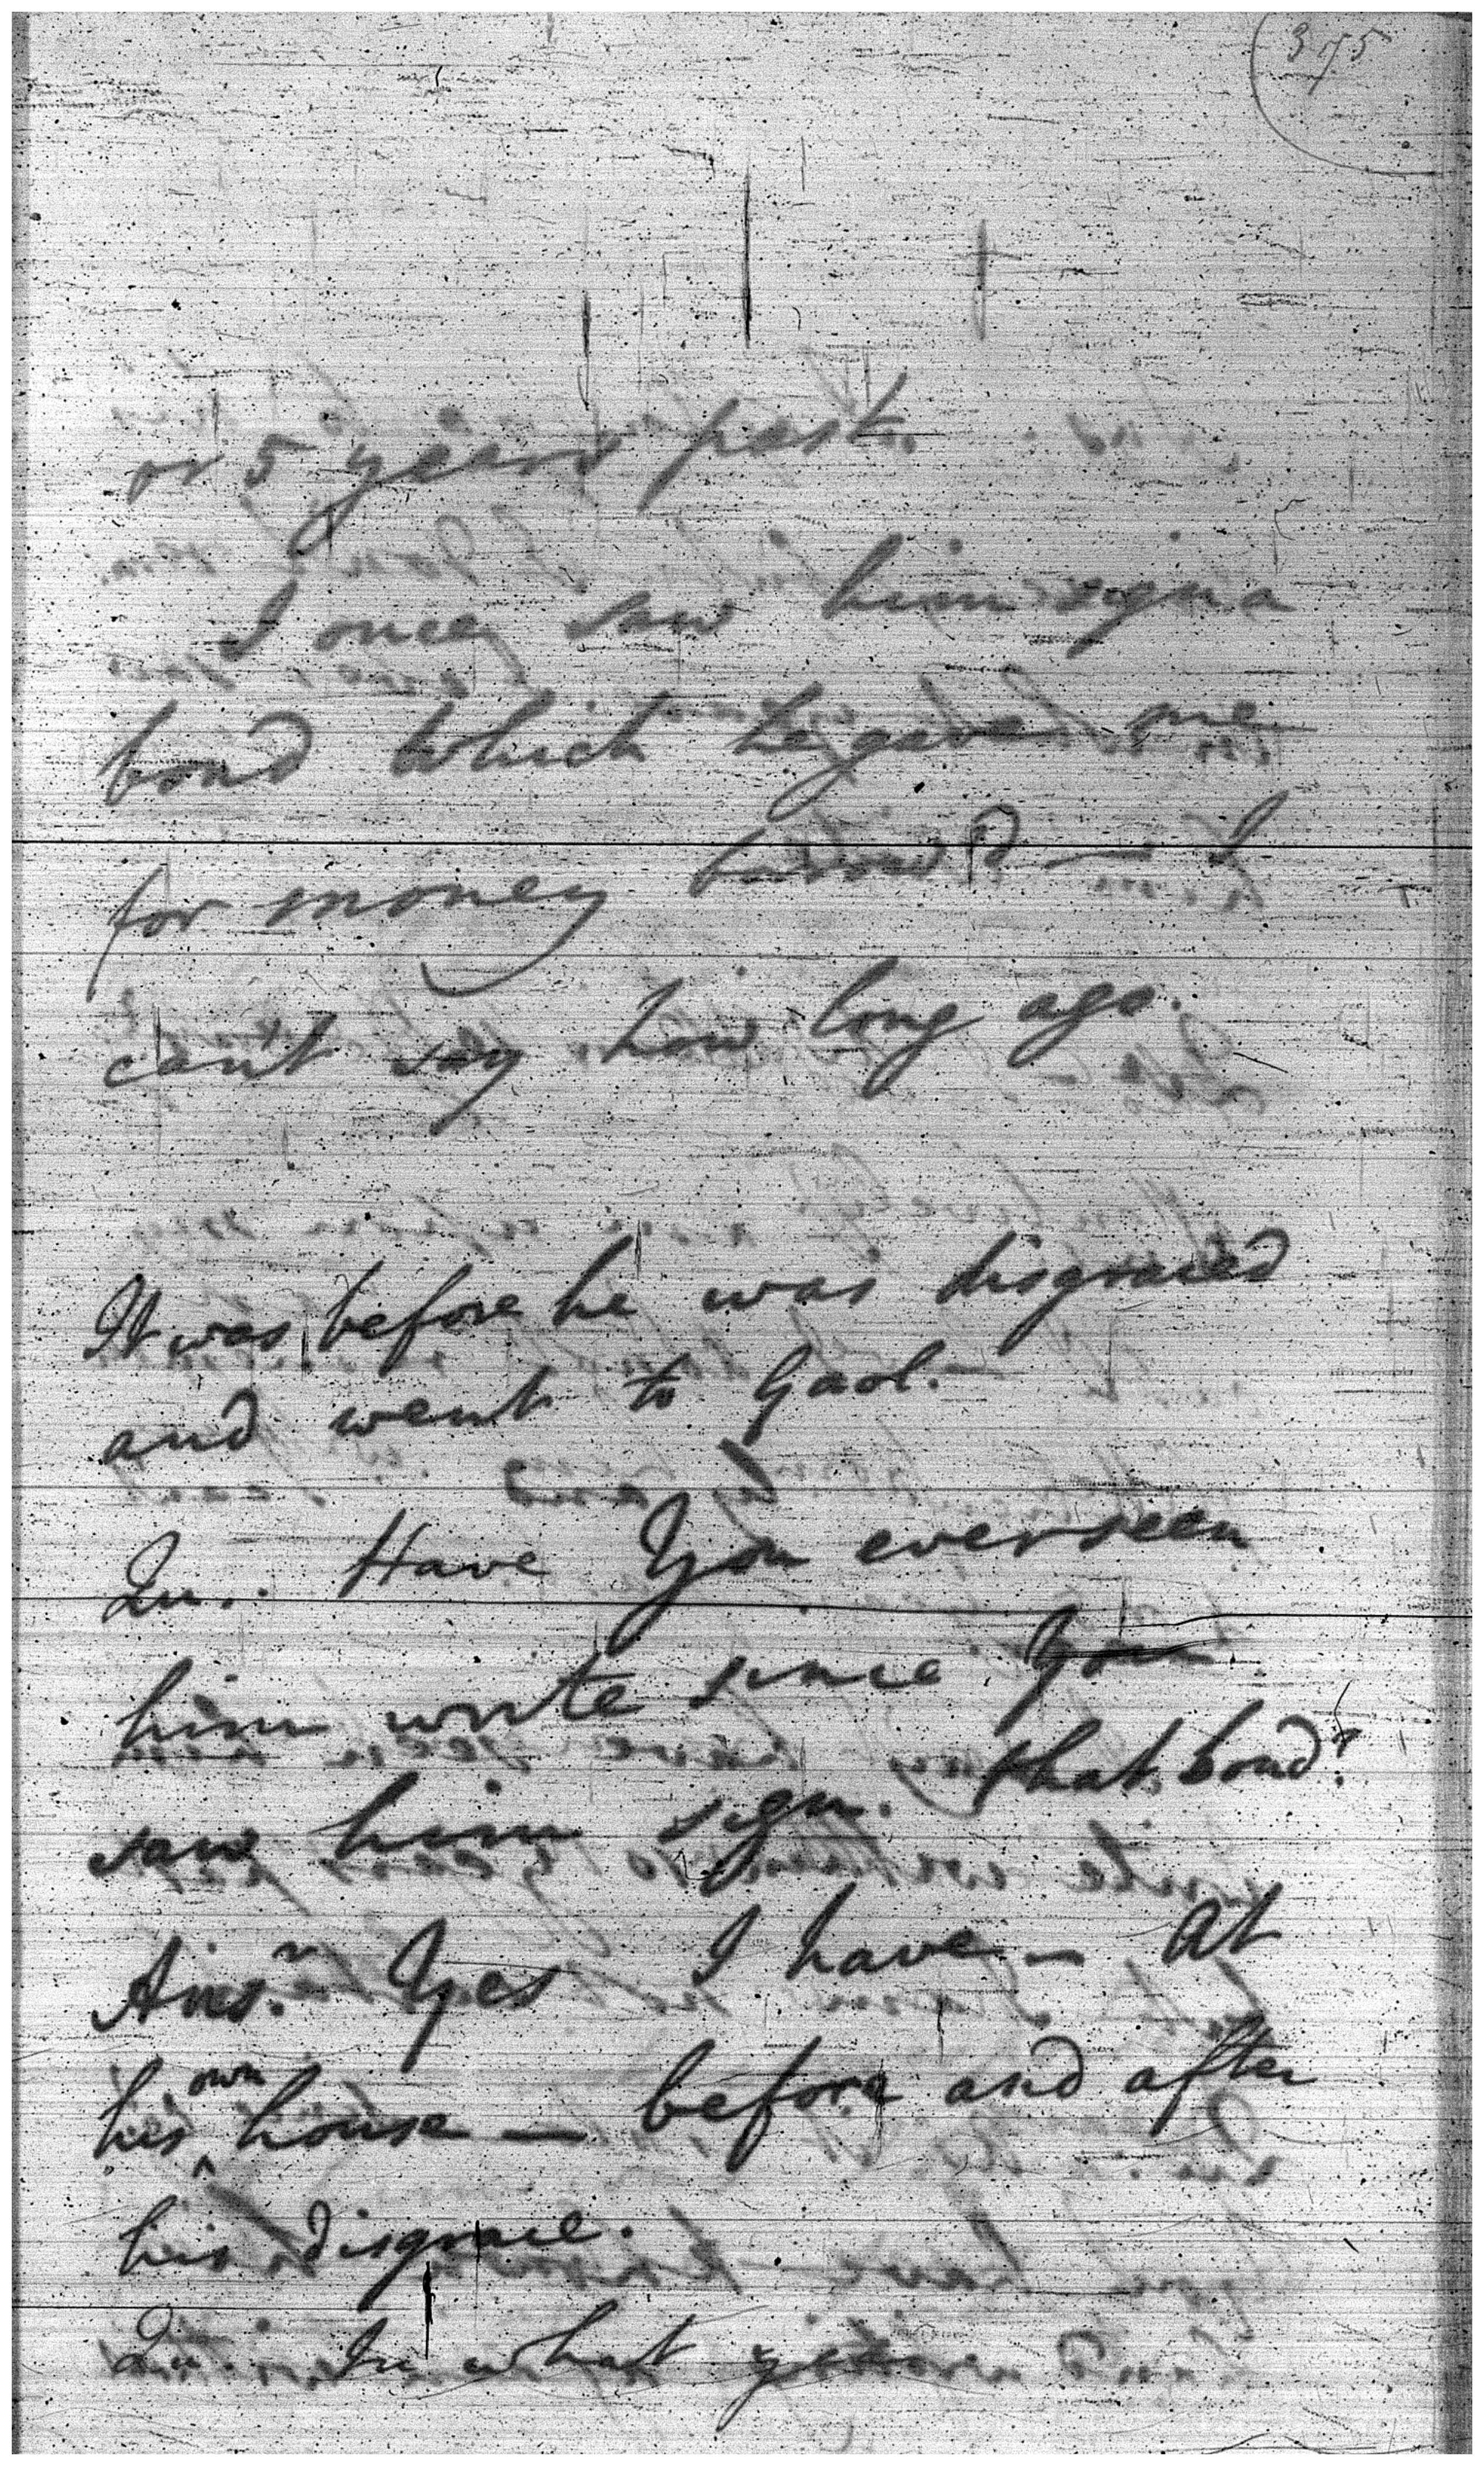 375
or 5 years past.
I once saw him sign a
bond which he gave me
for money — I
can't say how long ago.
It was before he was disgraced
and went to Gaol.
Qu. Have You ever seen
him write since You
saw him sign. that bond?
Ansr. Yes I have — At
his own house — before and after
his disgrace.
Qu. In what year